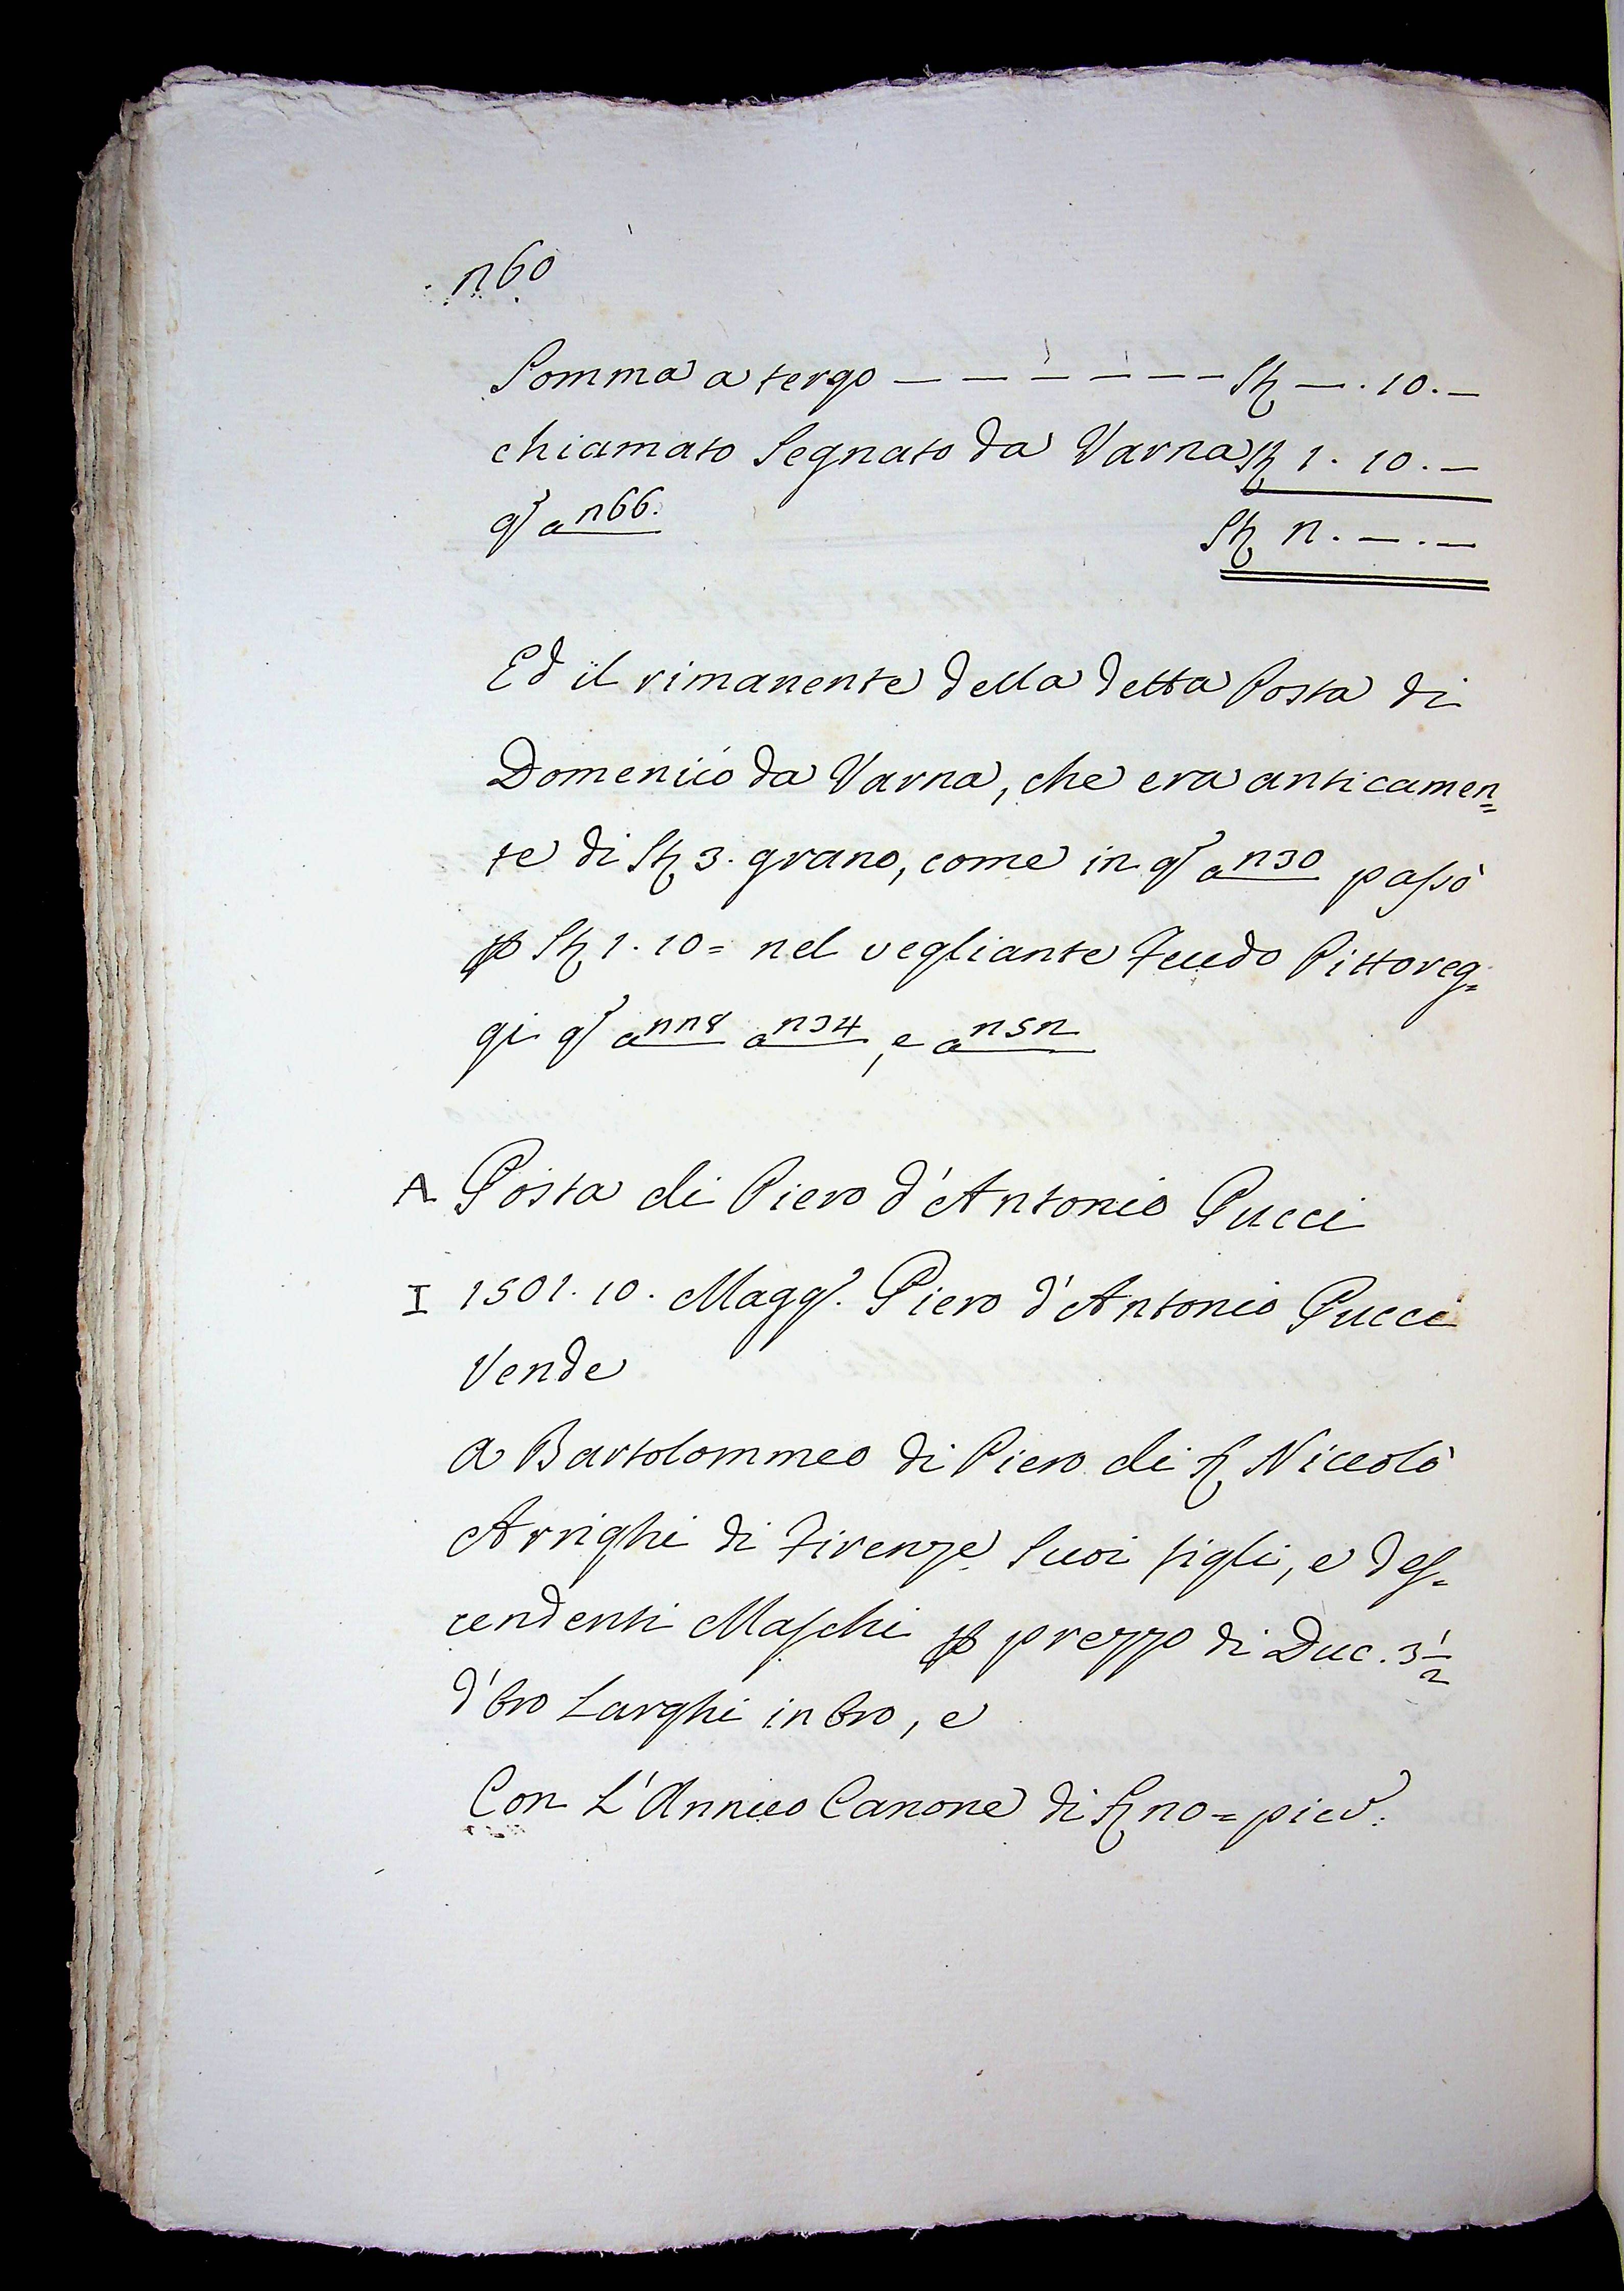 260
Somma a tergo — — — — — — St. — . 10. —
chiamato Segnato da Varna St. 1. 10. —
q.to a 266.
St. 2. — . —
Ed il rimanente della detta Posta di
Domenico da Varna, che era anticamen=
te di St. 3. grano, come in q.to a 230 passò
p St. 1. 10= nel vegliante Feudo Pittoreg=
gi q.to a 228 a 234, e a 252
A Posta di Piero d'Antonio Pucci
I 1501. 10. Magg.o Piero d'Antonio Pucci
Vende
a Bartolommeo di Piero di S. Niccolò
Arrighi di Firenze Suoi figli, e des=
cendenti Maschi p prezzo di Duc. 3 1/2
d'Oro Larghi in Oro, e
Con L'Annuo Canone di S. 20= picc.